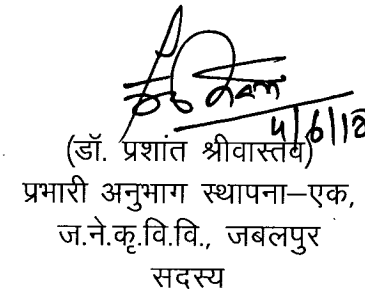 4/6/18
(डॉ. प्रशांत श्रीवास्तव)
प्रभारी अनुभाग स्थापना–एक,
ज.ने.कृ.वि.वि., जबलपुर
सदस्य